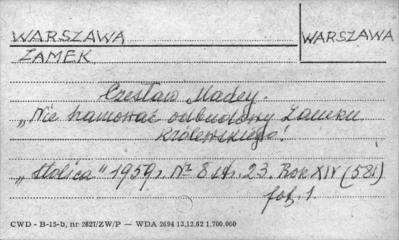 WARSZAWA
WARSZAWA
ZAMEK
Czesław Madey.
„Nie hamować odbudowy Zamku
Królewskiego!
„Stolica" 1959 r. Nr 8 str. 23. Rok XIV (581)
fot. 1
CWD - B-15-b, nr 2827/ZW/P — WDA 2694 13.12.62 1.700.000